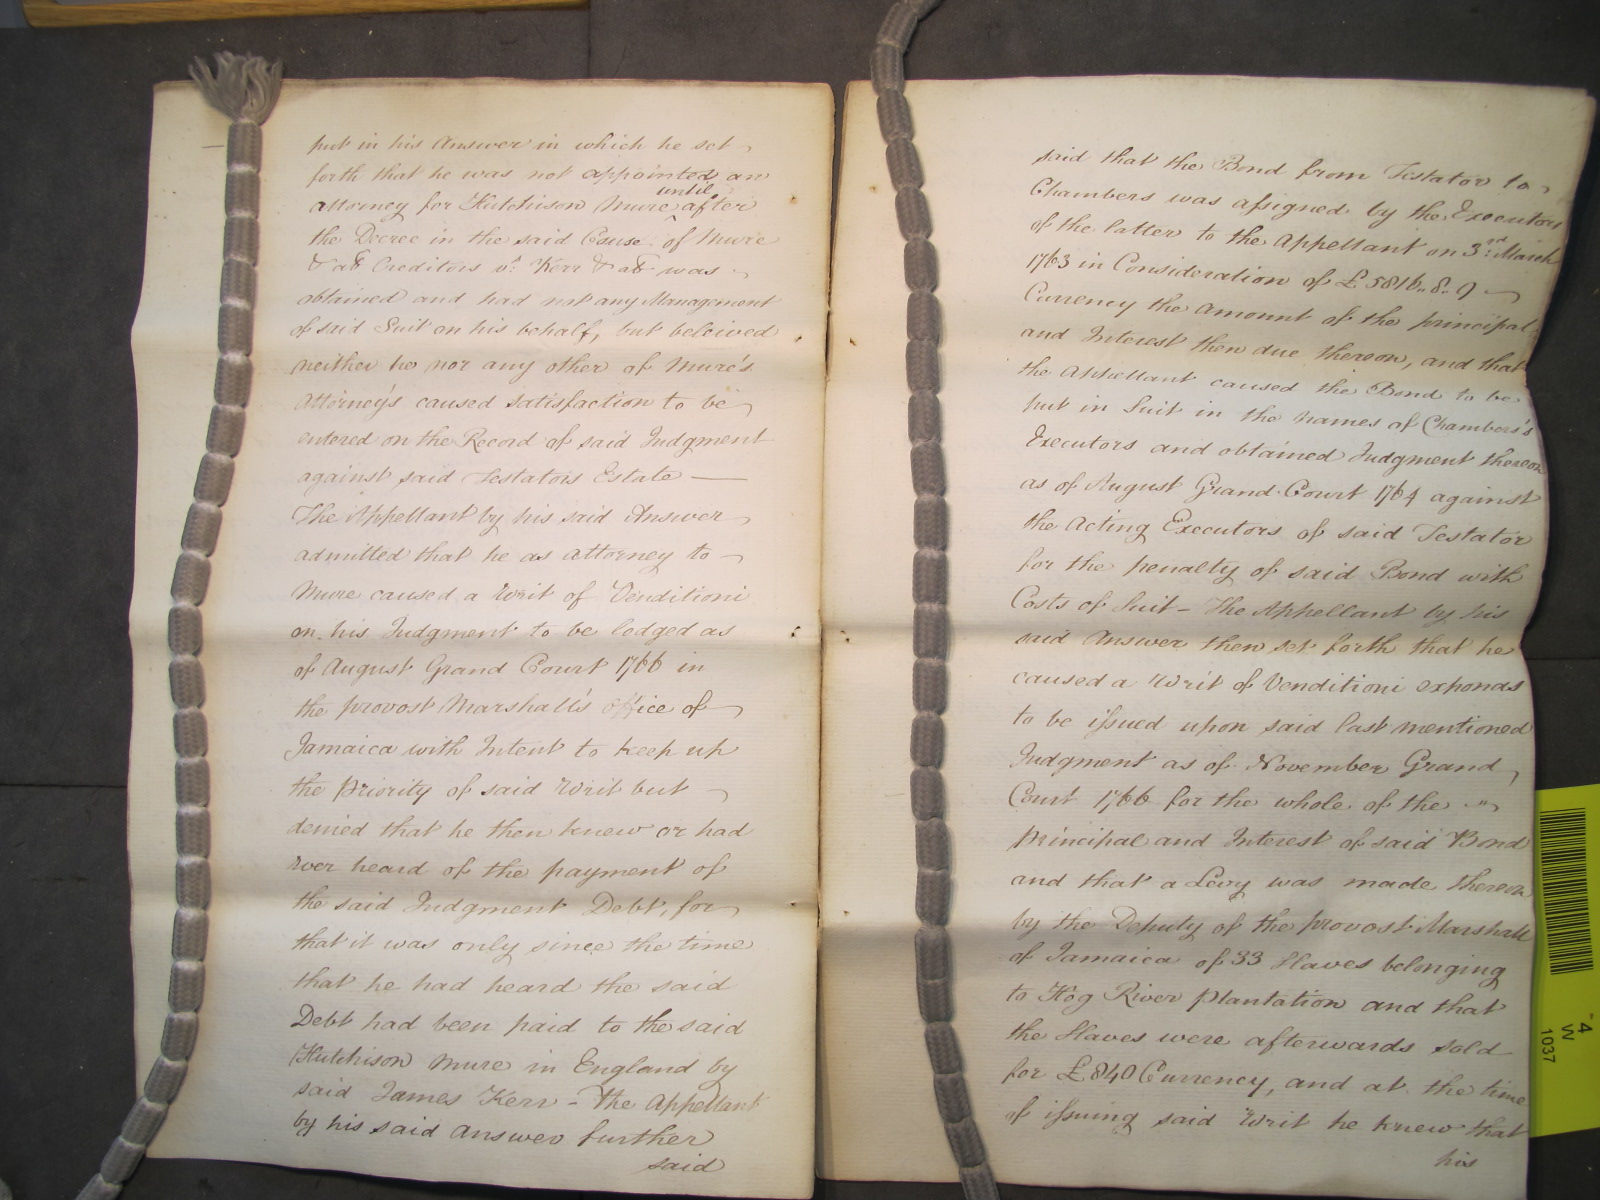 put in his Answer in which he set
forth that he was not appointed an
until
attorney for Hutchison Mure after
the Decree in the said Cause of Mure
& al Creditors vs. Kerr & al was
obtained and had not any Management
of said Suit on his behalf, but beleived
neither he nor any other of Mure's
Attorney's caused satisfaction to be
entered on the Record of said Judgment
against said Testators Estate —
The Appellant by his said Answer
admitted that he as attorney to
Mure caused a Writ of Venditioni
on his Judgment to be lodged as
of August Grand Court 1766 in
the provost Marshall's office of
Jamaica with Intent to keep up
the Priority of said Writ but
denied that he then knew or had
ever heard of the payment of
the said Judgment Debt, for
that it was only since the time
that he had heard the said
Debt had been paid to the said
Hutchison Mure in England by
said James Kerr - The Appellant
by his said Answer further
said
said that the Bond from Testator to
Chambers was assigned by the Executors
of the latter to the Appellant on 3rd. March
1763 in Consideration of £5816.. 8.. 9
Currency the Amount of the principal
and Interest then due thereon, and that
the Appellant caused the Bond to be
put in Suit in the names of Chambers's
Executors and obtained Judgment thereon
as of August Grand Court 1764 against
the Acting Executors of said Testator
for the penalty of said Bond with
Costs of Suit - The Appellant by his
said Answer then set forth that he
caused a Writ of Venditioni exponas
to be issued upon said last mentioned
Judgment as of November Grand
Court 1766 for the whole of the
Principal and Interest of said Bond
and that a Levy was made thereon
by the Deputy of the provost Marshall
of Jamaica of 33 Slaves belonging
to Hog River Plantation and that
the Slaves were afterwards sold
for £840 Currency, and at the time
of issuing said Writ he knew that
his
4
W
1037